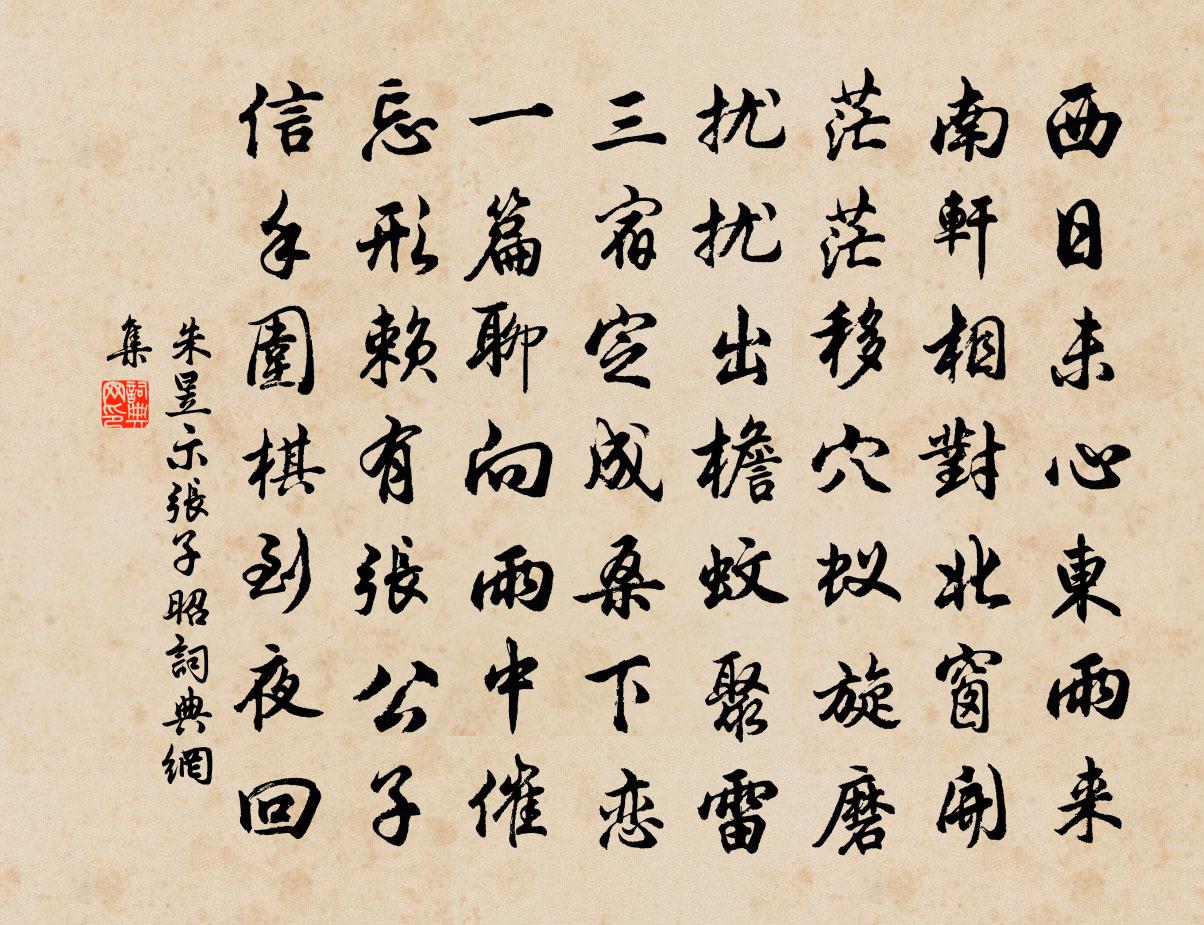 西日未心東雨来
南軒相對北窗開
茫茫移穴蚁旋磨
扰扰出檐蚊聚雷
三宿定成桑下恋
一篇聊向雨中催
忘形赖有張公子
信手圍棋到夜回
朱昱示張子昭詞典網
集
詞典
网印